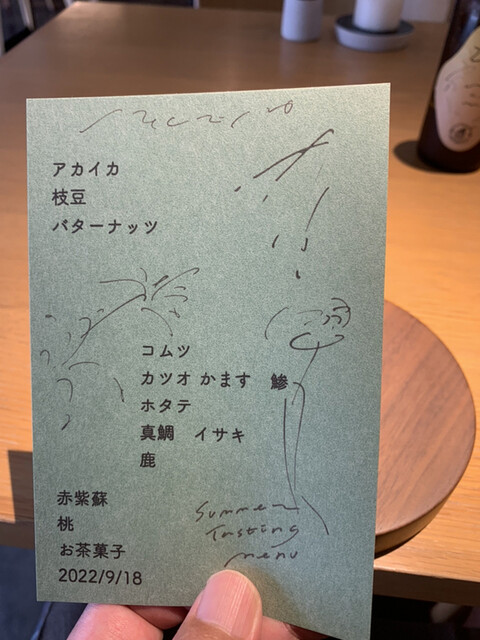 アカイカ
枝豆
バターナッツ
コムツ
カツオ かます 鯵
ホタテ
真鯛 イサキ
鹿
赤紫蘇
桃
お茶菓子
2022/9/18
Summer
Tasting
menu